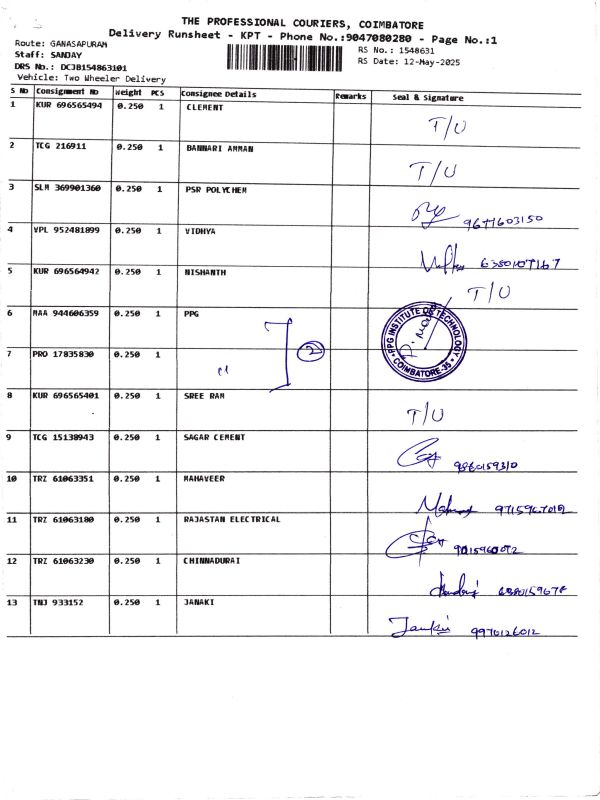 THE PROFESSIONAL COURIERS, COIMBATORE
Delivery Runsheet - KPT - Phone No.:9047080280 - Page No.:1
Route: GANASAPURAM
RS No.: 1548631
Staff: SANJAY
RS Date: 12-May-2025
DRS No.: DCJB154863101
Vehicle: Two Wheeler Delivery
S No Consignment No Weight PCS Consignee Details Remarks Seal & Signature
1 KUR 696565494 0.250 1 CLEMENT T/U
2 TCG 216911 0.250 1 BANNARI AMMAN T/U
3 SLM 369901360 0.250 1 PSR POLYCHEM 9677603150
4 VPL 952481899 0.250 1 VIDHYA 6380107167
5 KUR 696564942 0.250 1 NISHANTH T/U
6 MAA 944606359 0.250 1 PPG
PPG INSTITUTE OF TECHNOLOGY
COIMBATORE-35
7 PRO 17835830 0.250 1 " 2
8 KUR 696565401 0.250 1 SREE RAM T/U
9 TCG 15138943 0.250 1 SAGAR CEMENT
10 TRZ 61063351 0.250 1 MAHAVEER
11 TRZ 61063180 0.250 1 RAJASTAN ELECTRICAL
12 TRZ 61063230 0.250 1 CHINNADURAI
13 TNJ 933152 0.250 1 JANAKI 9970126012